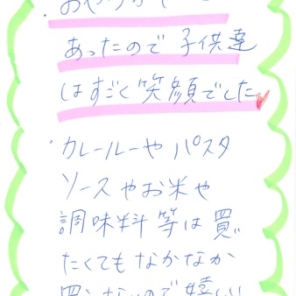 ・おやつが
あったので子供達
はすごく笑顔でした
・カレールーや パスタ
ソースやお米や
調味料等は買
たくてもなかなか
買えないので嬉しい